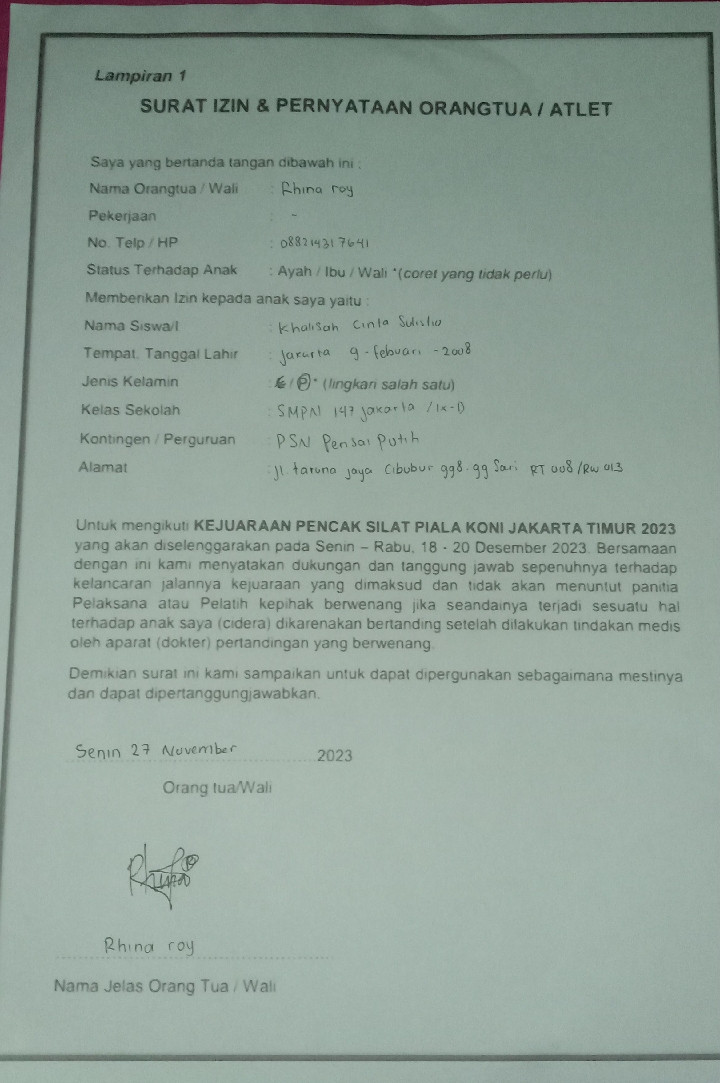 Lampiran 1
SURAT IZIN & PERNYATAAN ORANGTUA / ATLET
Saya yang bertanda tangan dibawah ini :
Nama Orangtua / Wali : Rhina roy
Pekerjaan : -
No. Telp / HP : 088214317641
Status Terhadap Anak : Ayah / Ibu / Wali *(coret yang tidak perlu)
Memberikan Izin kepada anak saya yaitu :
Nama Siswa/I : Khalisah Cinta Sulistio
Tempat. Tanggal Lahir : Jakarta 9 - Febuari - 2008
Jenis Kelamin : L / P * (lingkari salah satu)
Kelas Sekolah : SMPN 147 Jakarta / IX-D
Kontingen / Perguruan : PSN Perisai Putih
Alamat : Jl. taruna jaya Cibubur gg8. gg Sari RT 008 / RW 013
Untuk mengikuti KEJUARAAN PENCAK SILAT PIALA KONI JAKARTA TIMUR 2023
yang akan diselenggarakan pada Senin – Rabu, 18 - 20 Desember 2023. Bersamaan
dengan ini kami menyatakan dukungan dan tanggung jawab sepenuhnya terhadap
kelancaran jalannya kejuaraan yang dimaksud dan tidak akan menuntut panitia
Pelaksana atau Pelatih kepihak berwenang jika seandainya terjadi sesuatu hal
terhadap anak saya (cidera) dikarenakan bertanding setelah dilakukan tindakan medis
oleh aparat (dokter) pertandingan yang berwenang.
Demikian surat ini kami sampaikan untuk dapat dipergunakan sebagaimana mestinya
dan dapat dipertanggungjawabkan.
Senin 27 November 2023
Orang tua/Wali
Rhina roy
Nama Jelas Orang Tua / Wali